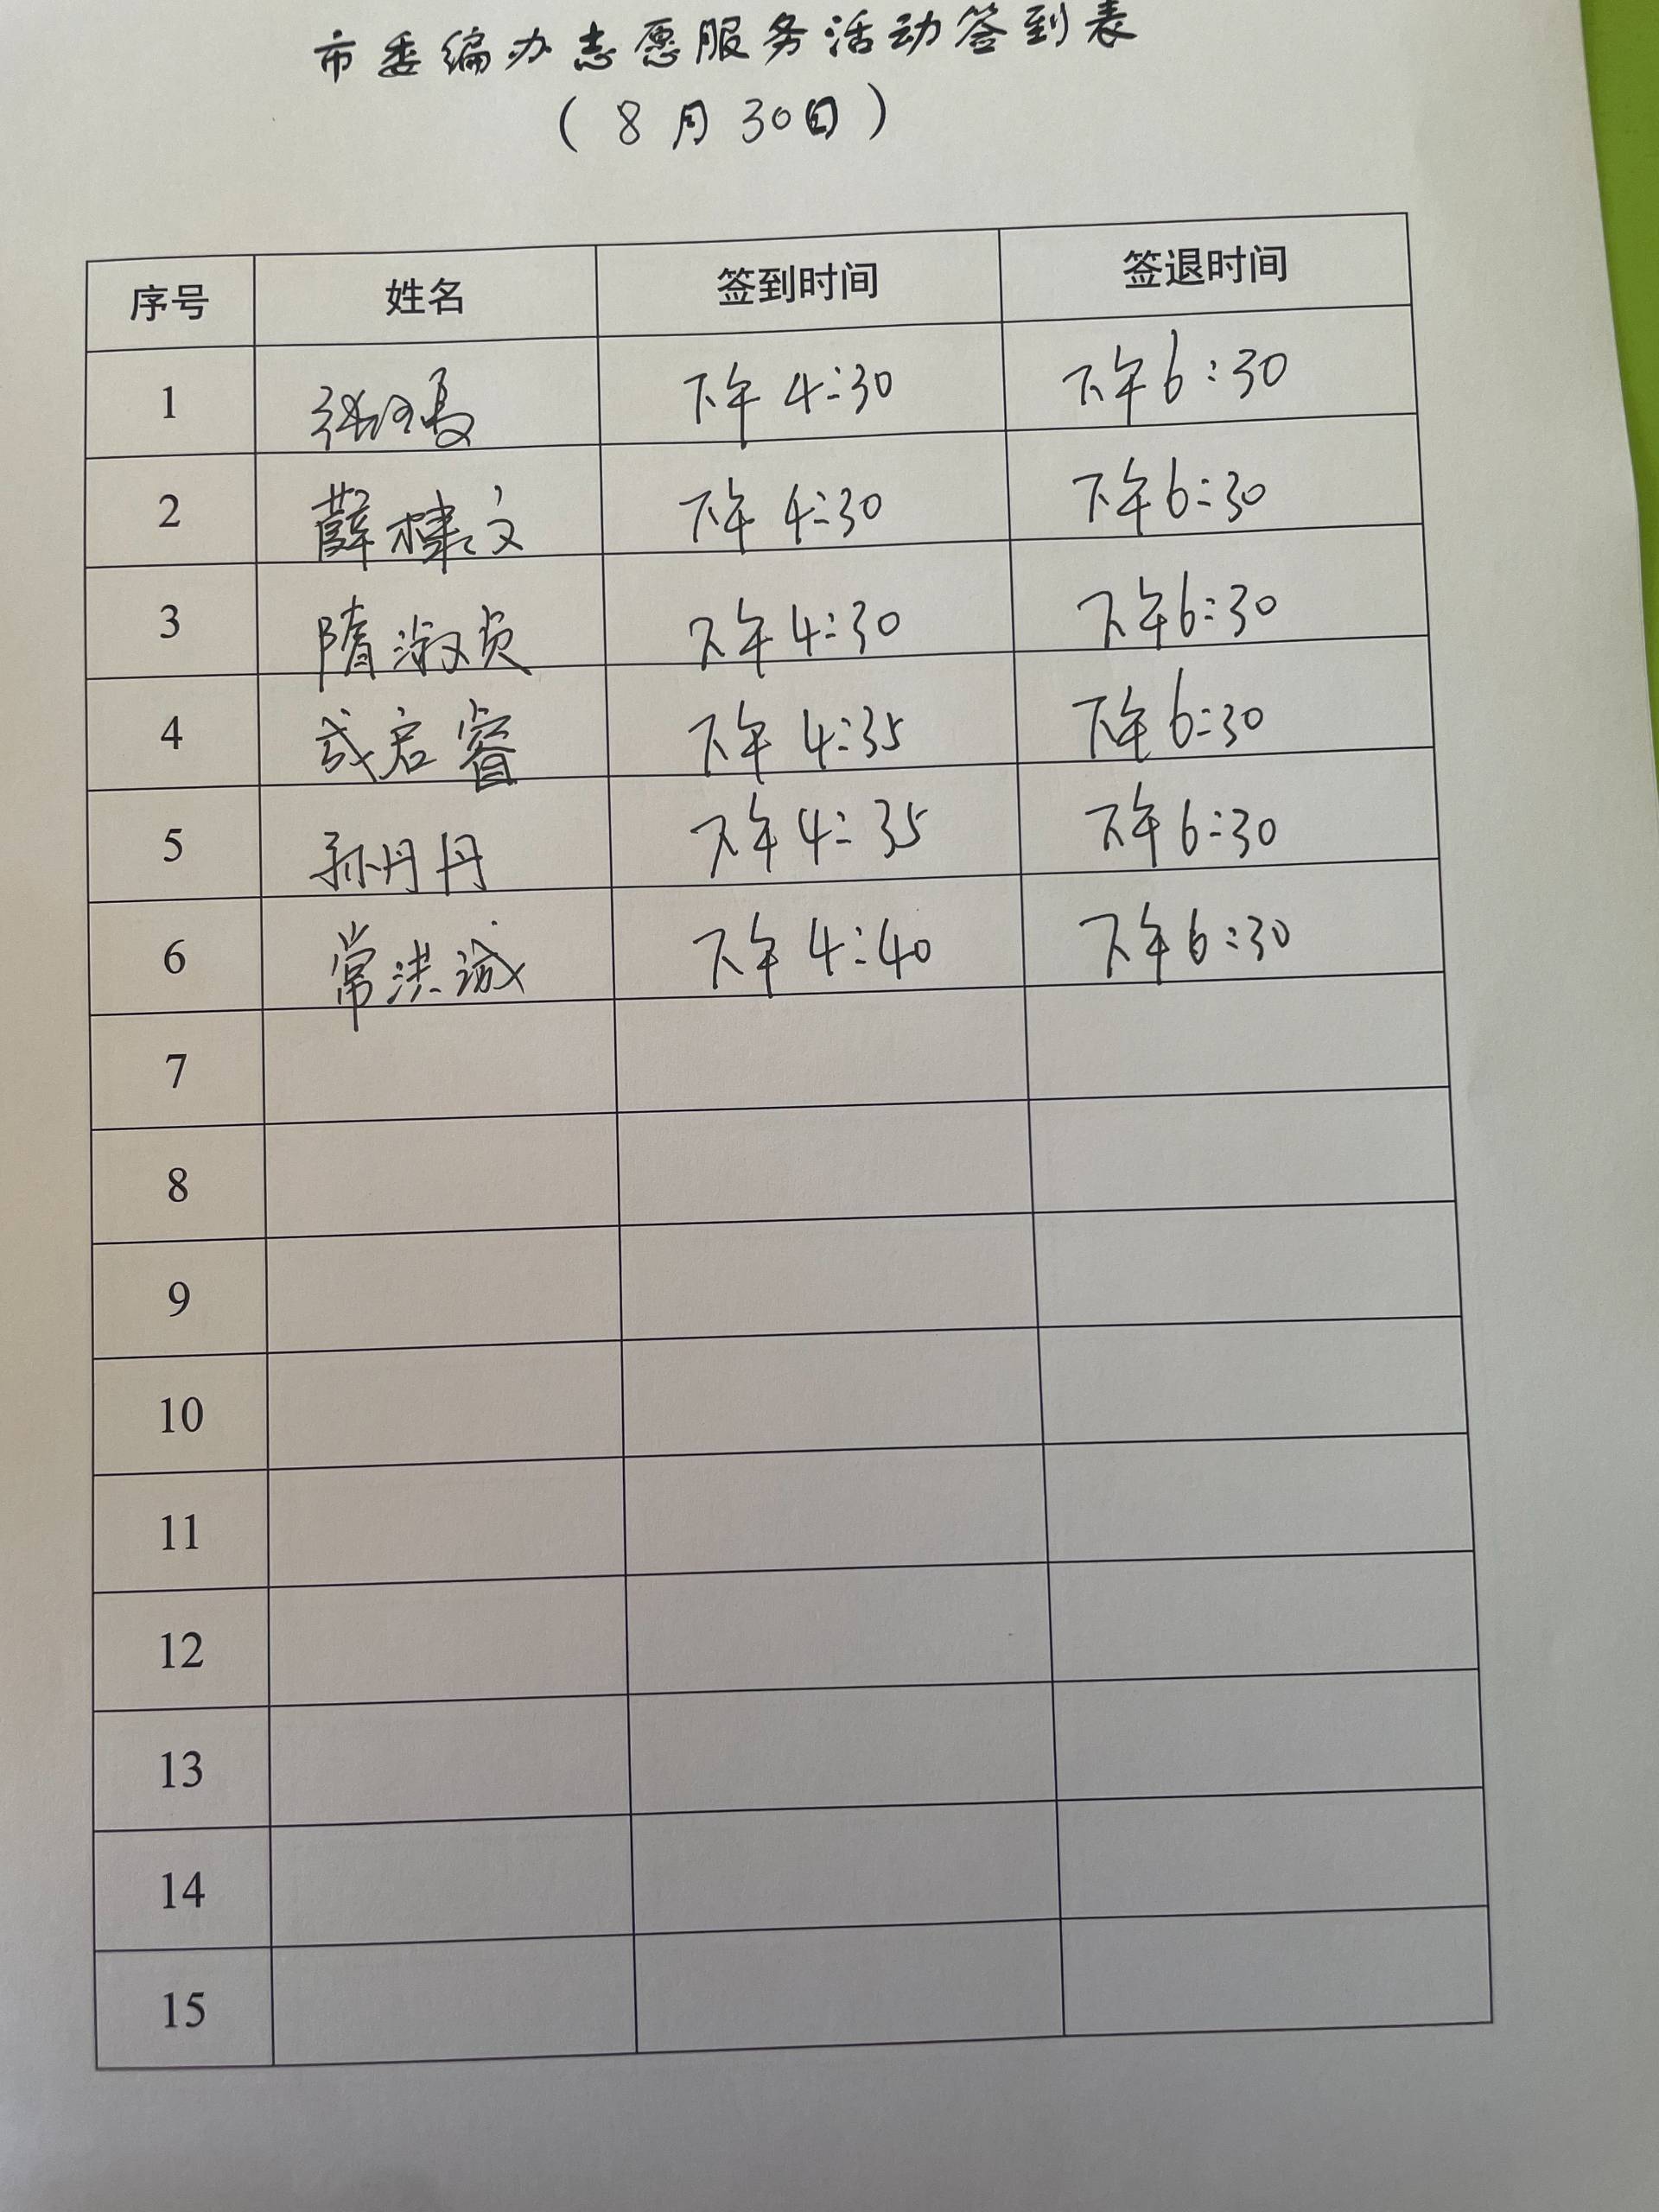 市委编办志愿服务活动签到表
（8月30日）
序号 姓名 签到时间 签退时间
1 下午4:30 下午6:30
2 薛棣文 下午4:30 下午6:30
3 隋淑贞 下午4:30 下午6:30
4 启睿 下午4:35 下午6:30
5 孙丹丹 下午4:35 下午6:30
6 常洪诚 下午4:40 下午6:30
7
8
9
10
11
12
13
14
15